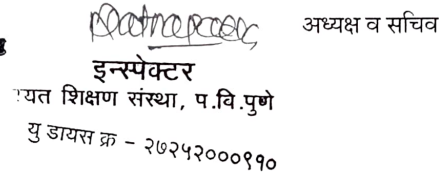 अध्यक्ष व सचिव
इन्स्पेक्टर
रयत शिक्षण संस्था, प.वि.पुणे
यु डायस क्र - २७२५२०००९१०